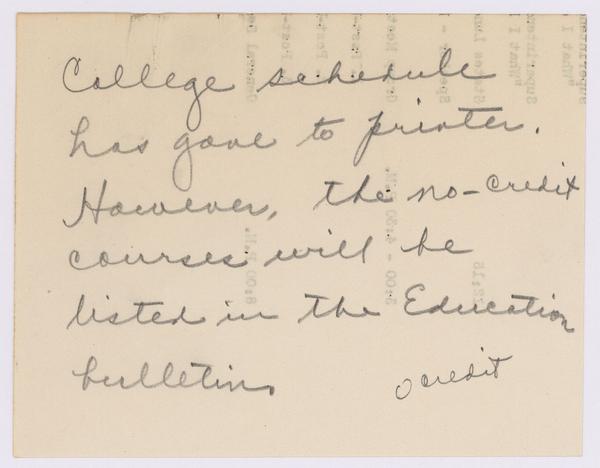 College schedule
has gone to printer.
However, the no-credit
courses will be
listed in the Education
bulletin.
0 credit